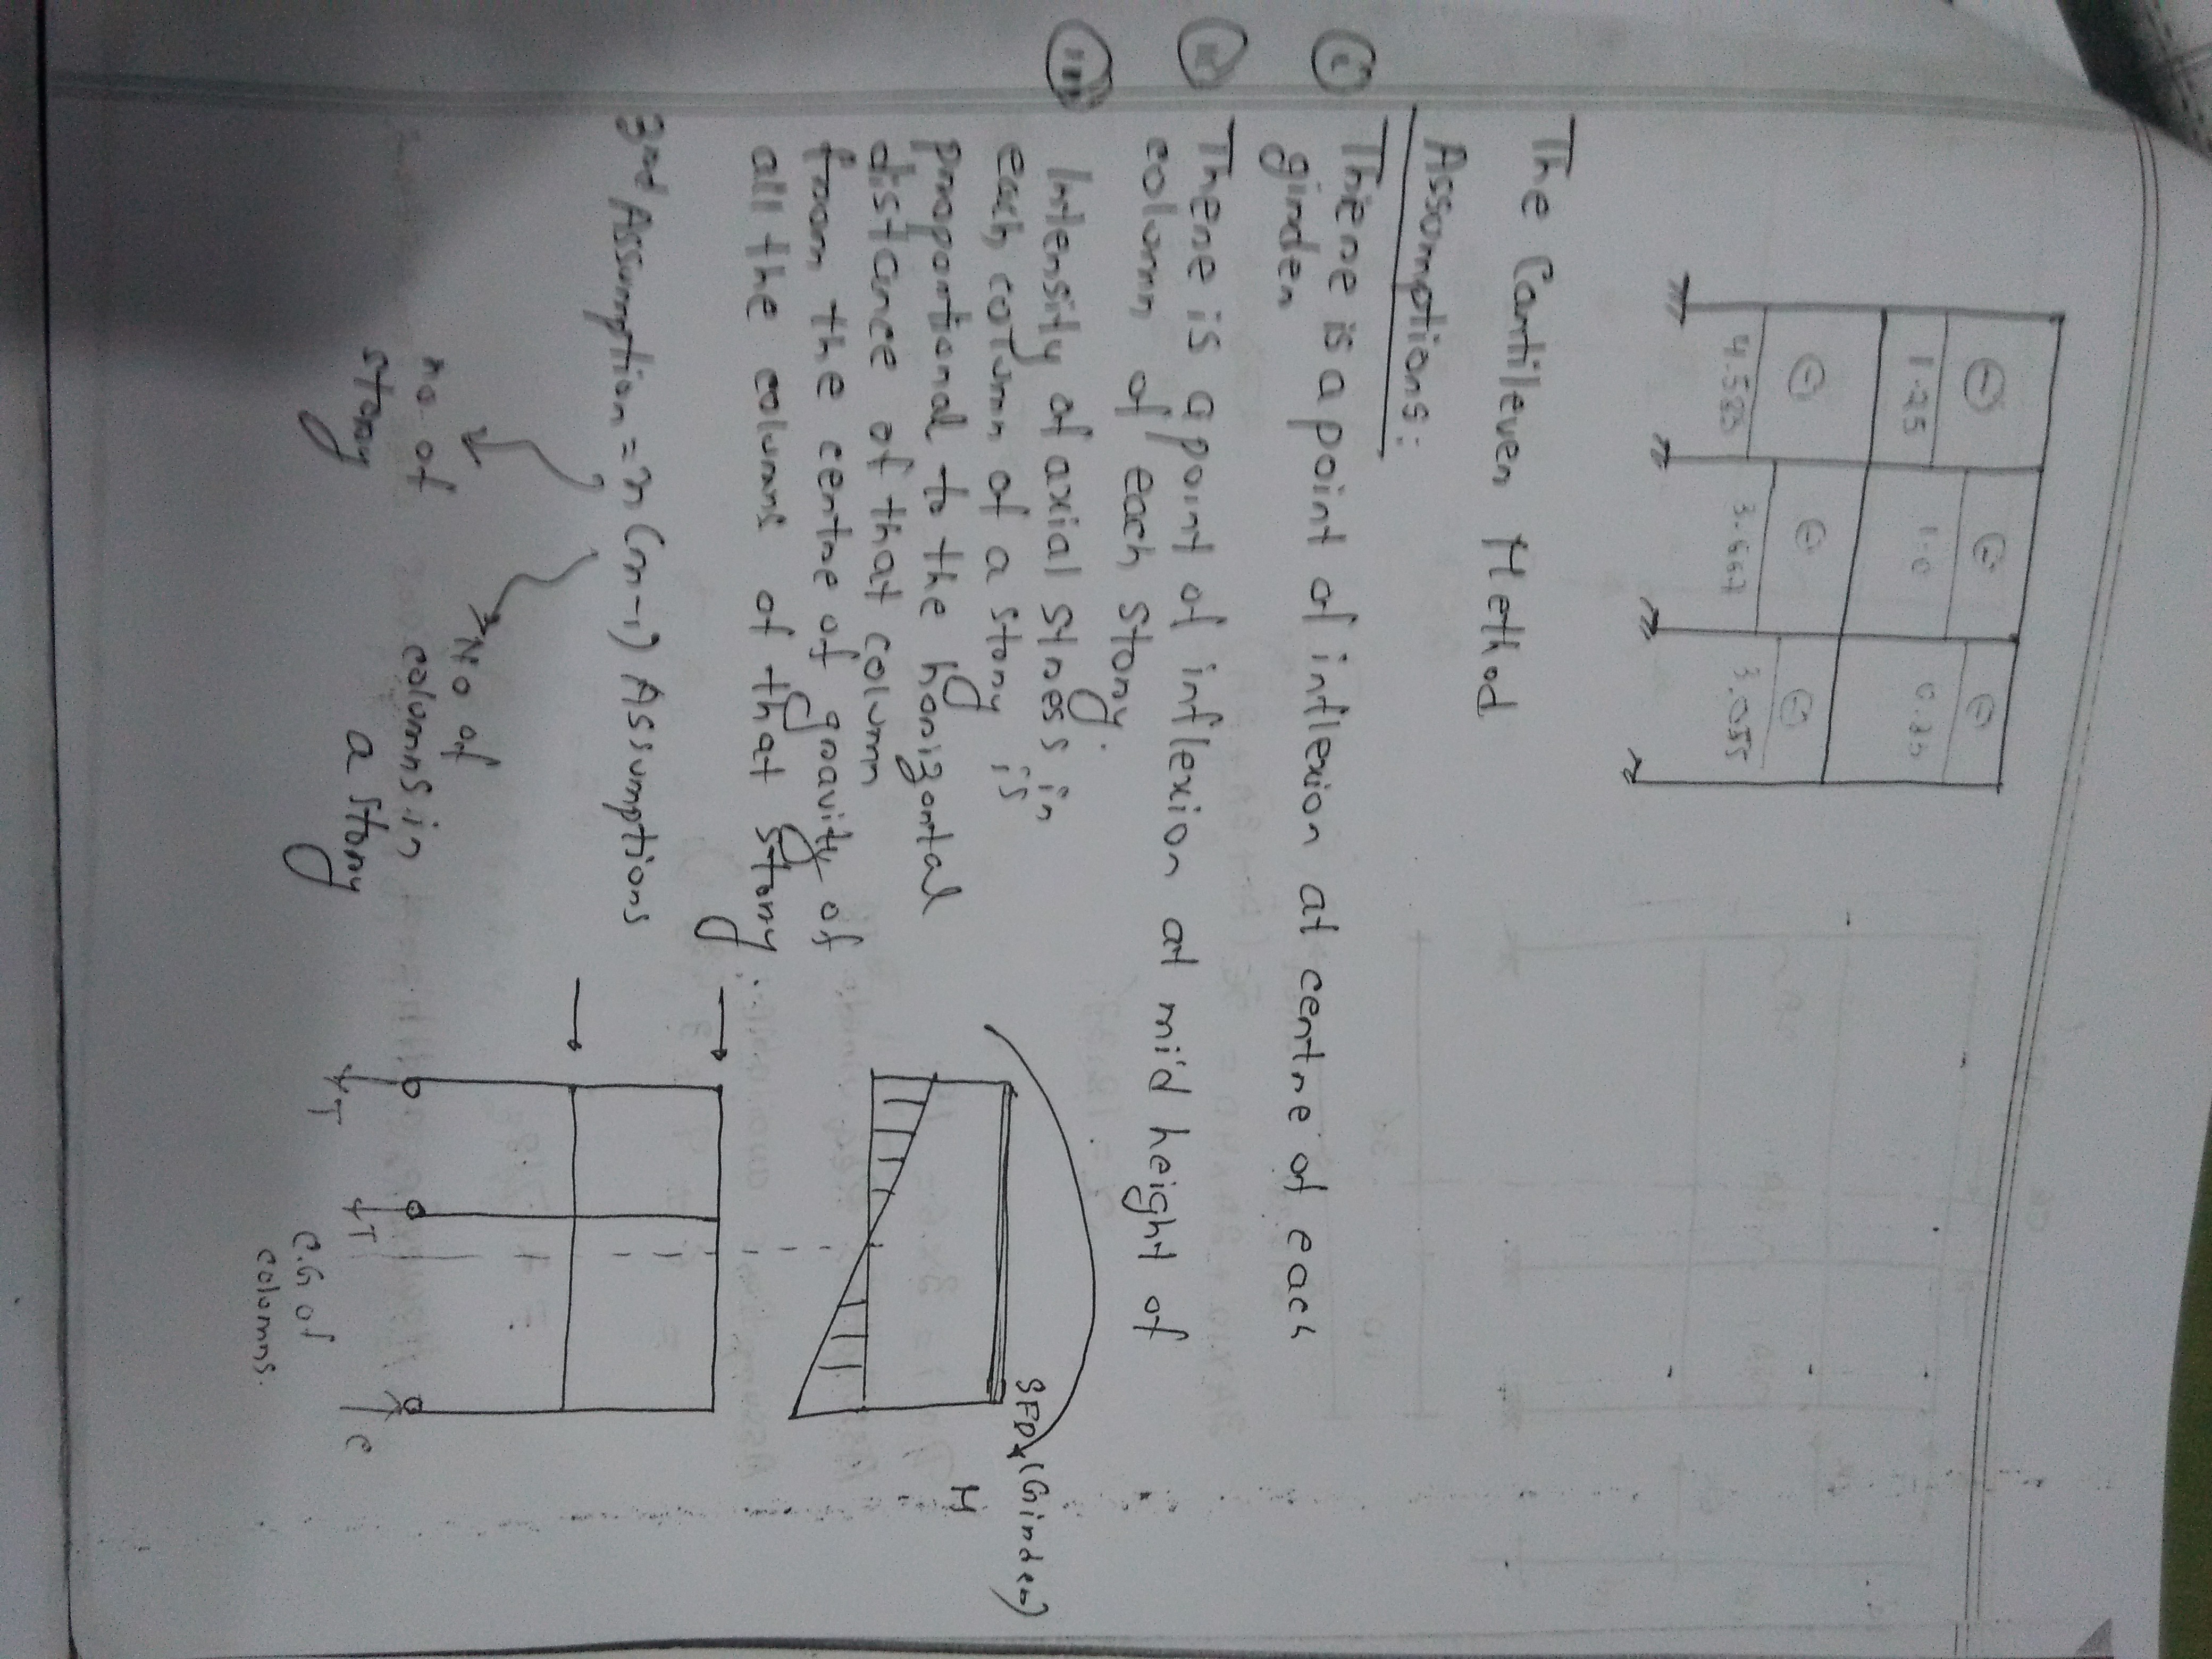 1.25 1.0
4.583 3.667 3.055
The Cantilever Method
Assumptions:
(i) There is a point of inflexion at centre of each
girder
(ii) There is a point of inflexion at mid height of
column of each story.
(iii) Intensity of axial stress in
each column of a story is
proportional to the horizontal
distance of that column
from the centre of gravity of
all the columns of that story.
3rd Assumption = n (m-1) Assumptions
no of
story
No of
columns in
a story
SFD (Girder)
M
T T C
C.G of
columns.